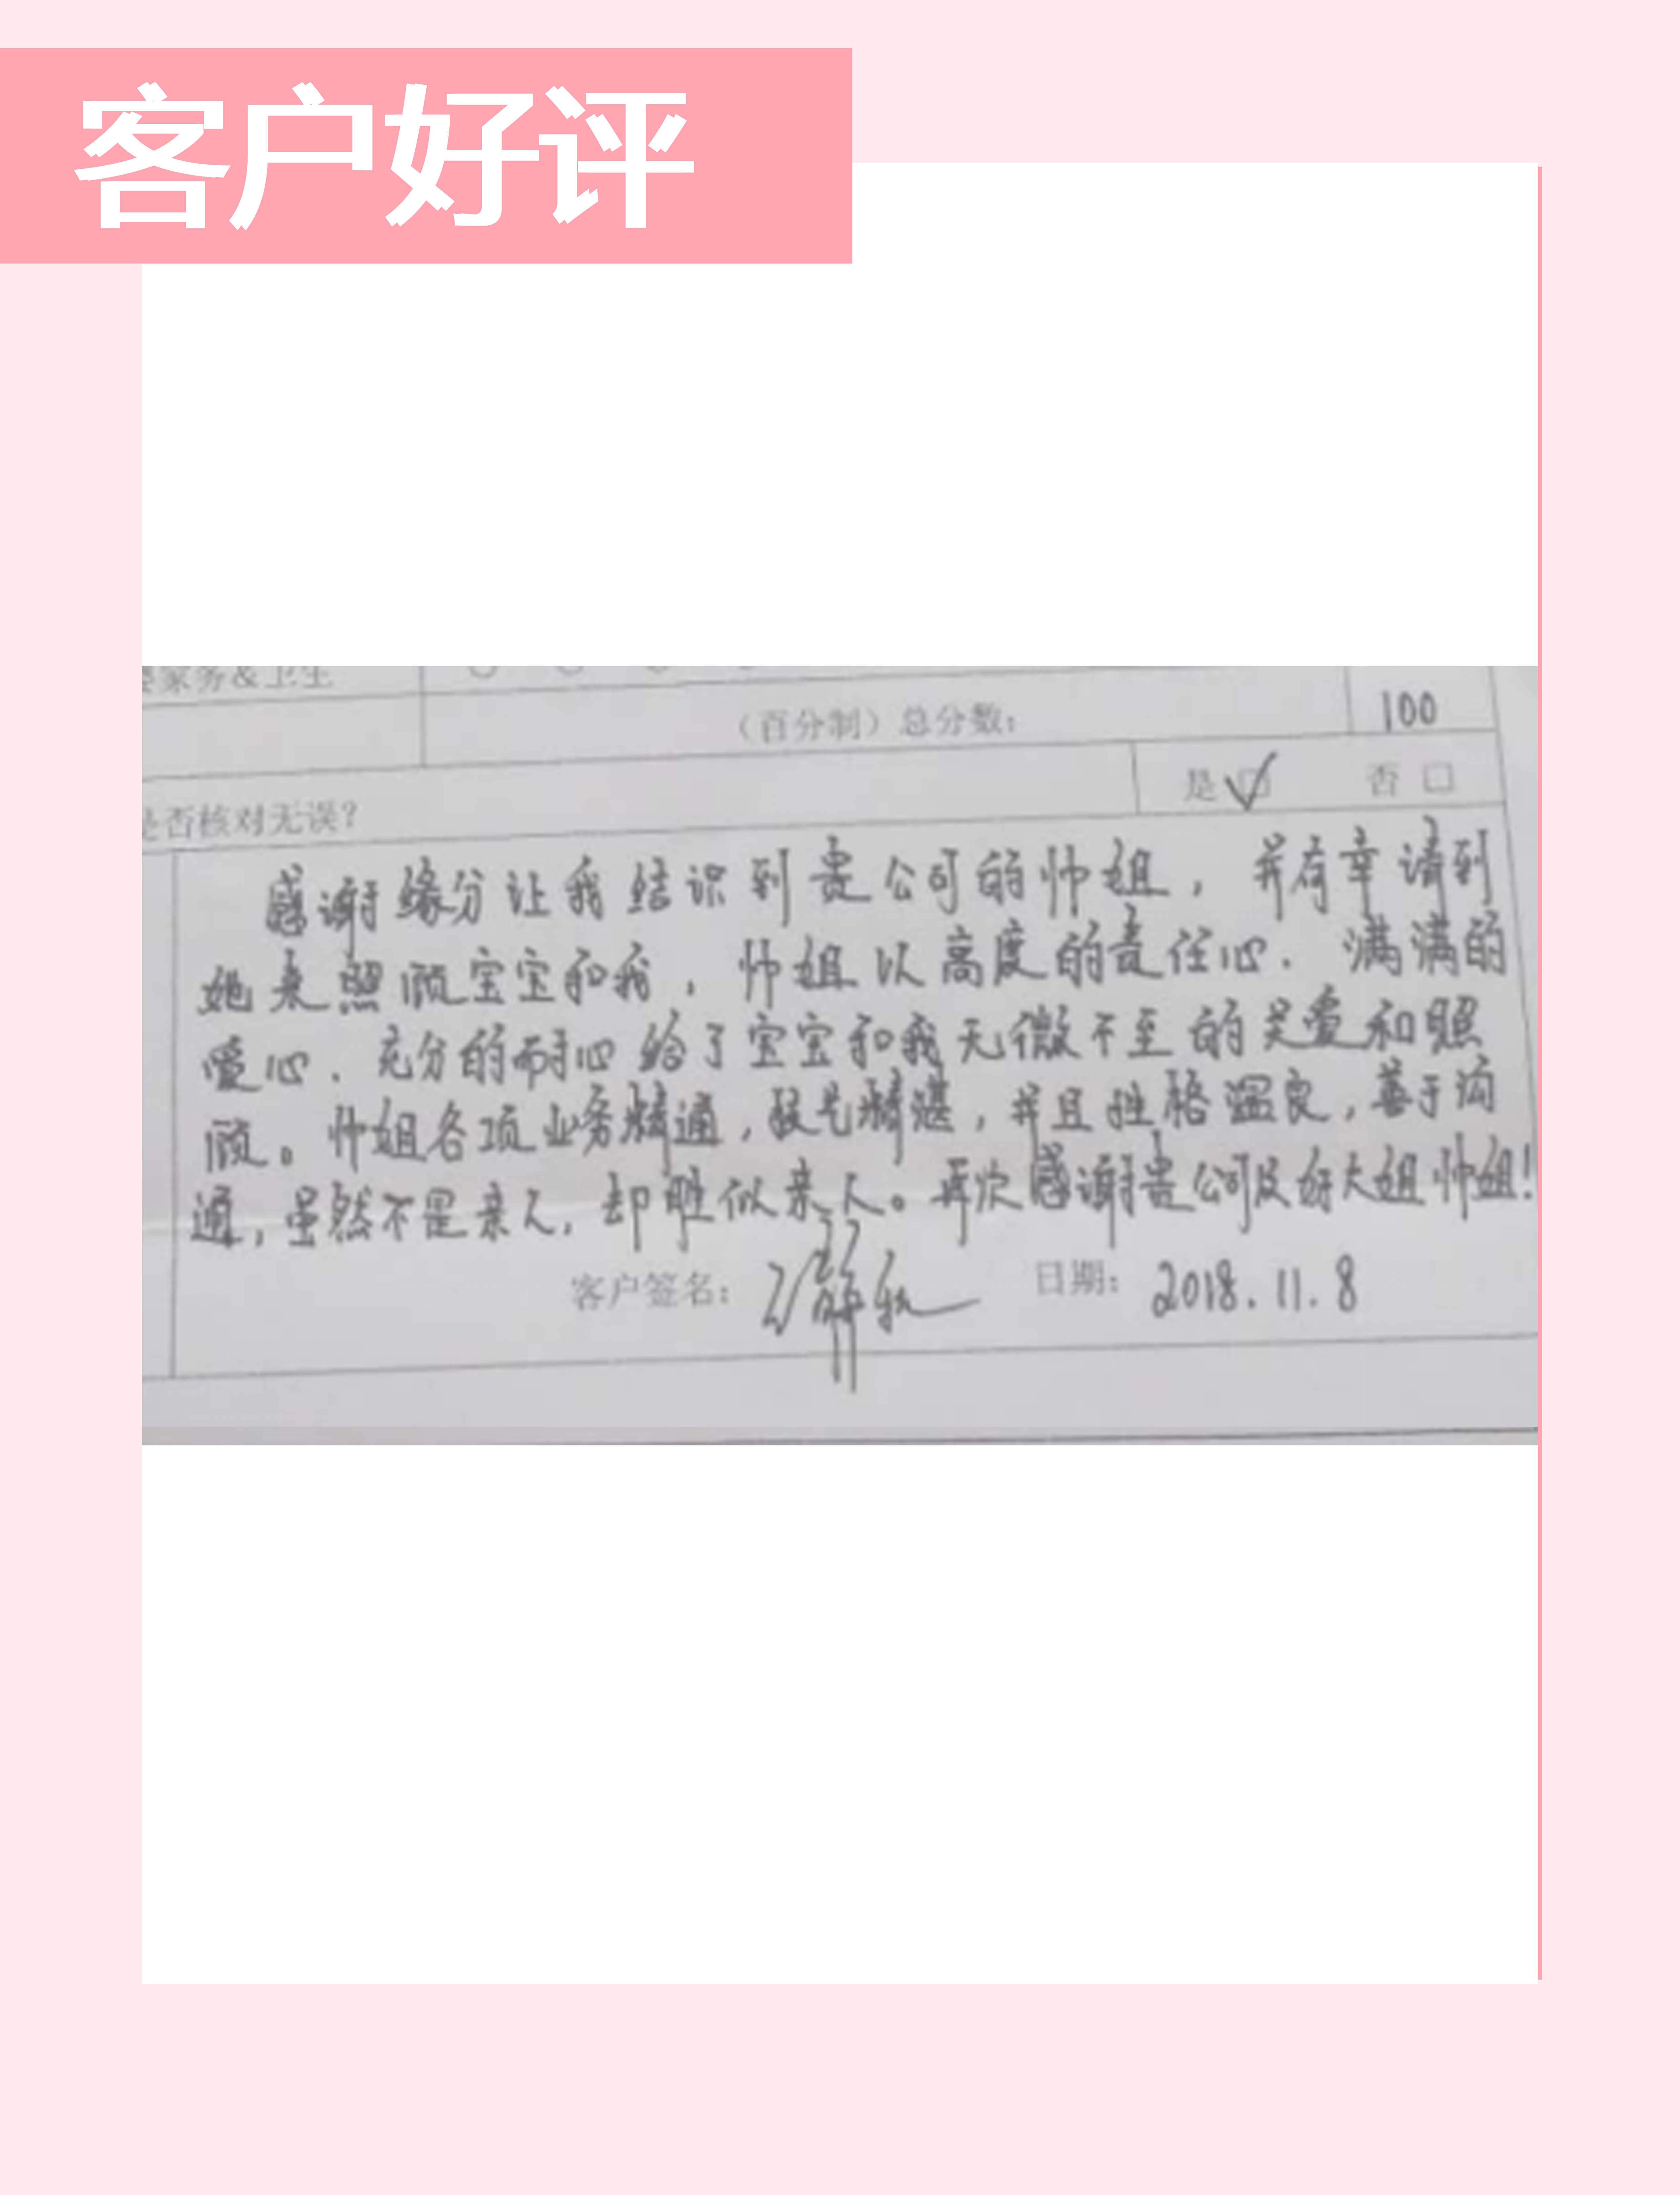 客户好评
家务&卫生
（百分制）总分数： 100
是否核对无误？ 是 ☑ 否 □
感谢缘分让我结识到贵公司的帅姐，并有幸请到
她来照顾宝宝和我，帅姐以高度的责任心．满满的
爱心．充分的耐心给了宝宝和我无微不至的关爱和照
顾。帅姐各项业务精通，技艺精湛，并且性格温良，善于沟
通，虽然不是亲人，却胜似亲人。再次感谢贵公司及好大姐帅姐！
客户签名： 日期：2018.11.8